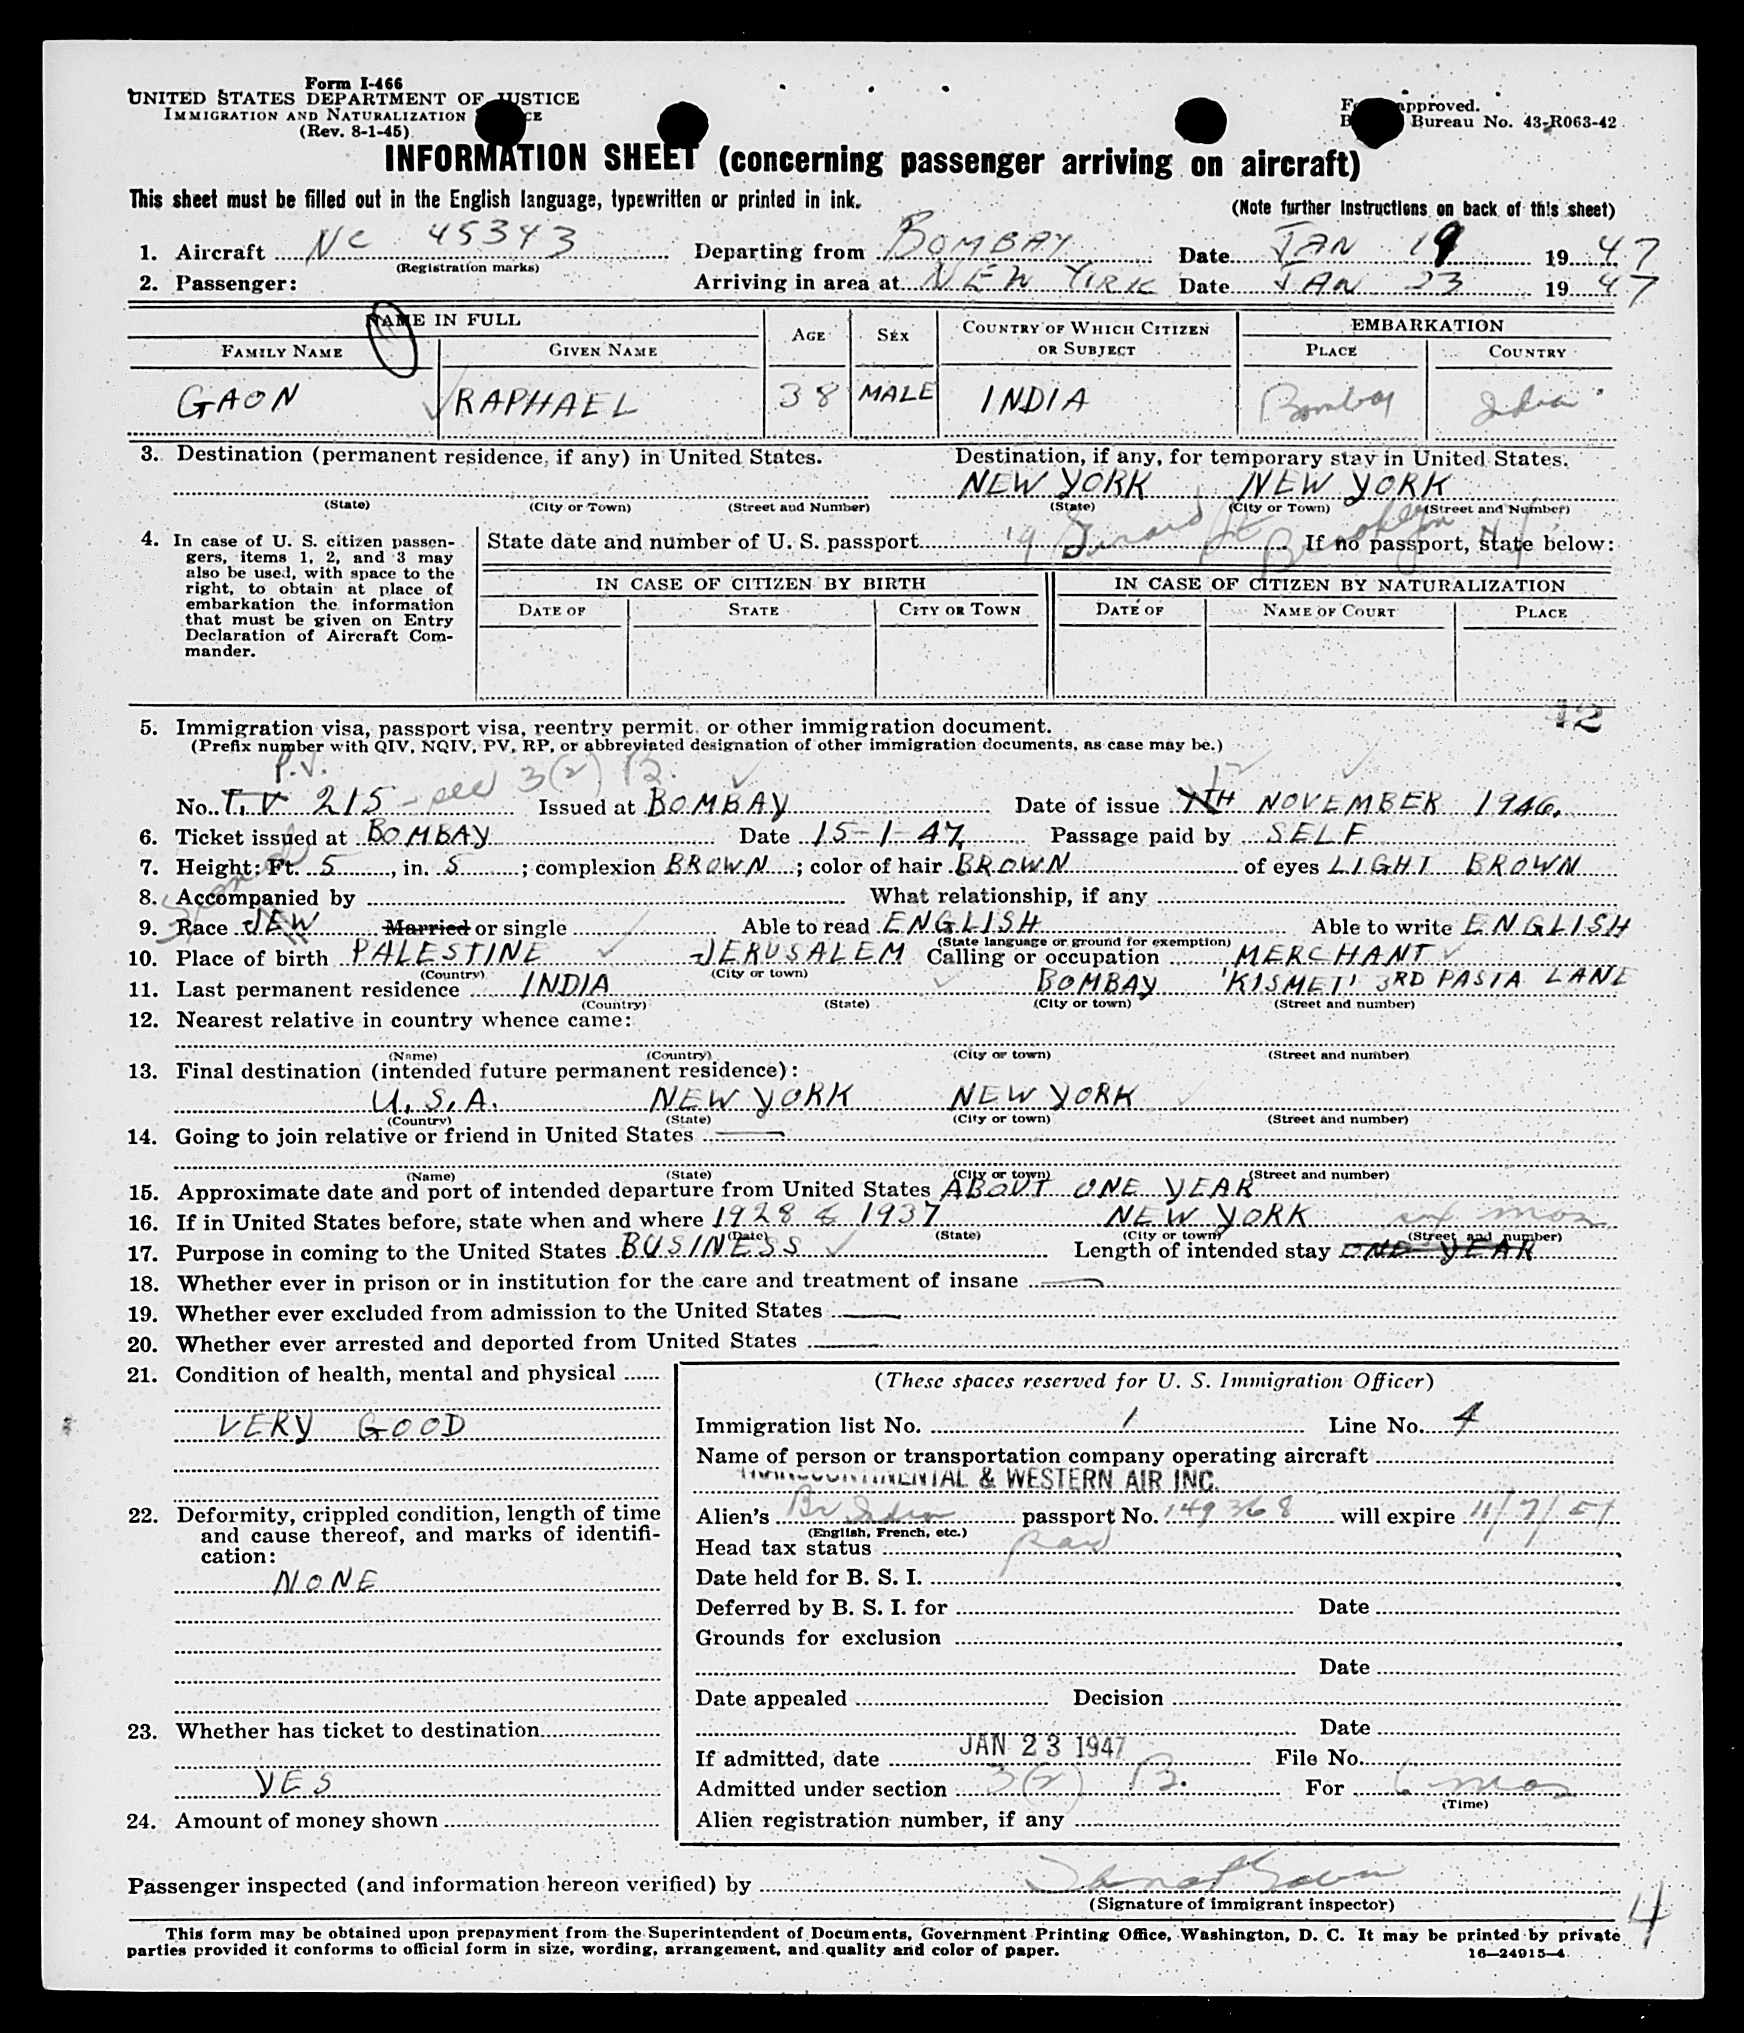 Form I-466
UNITED STATES DEPARTMENT OF JUSTICE
IMMIGRATION AND NATURALIZATION
(Rev. 8-1-45)
approved.
Bureau No. 43-R063-42
INFORMATION SHEET (concerning passenger arriving on aircraft)
This sheet must be filled out in the English language, typewritten or printed in ink.
(Note further instructions on back of this sheet)
1. Aircraft NC 45343 Departing from BOMBAY Date JAN 19 1947
(Registration marks)
2. Passenger: Arriving in area at NEW YORK Date JAN 23 1947
NAME IN FULL AGE SEX COUNTRY OF WHICH CITIZEN OR SUBJECT EMBARKATION
FAMILY NAME GIVEN NAME PLACE COUNTRY
GAON RAPHAEL 38 MALE INDIA Bombay India
3. Destination (permanent residence, if any) in United States. Destination, if any, for temporary stay in United States.
NEW YORK NEW YORK
(State) (City or Town) (Street and Number) (State) (City or Town) (Street and Number)
4. In case of U. S. citizen passengers, items 1, 2, and 3 may also be used, with space to the right, to obtain at place of embarkation the information that must be given on Entry Declaration of Aircraft Commander.
State date and number of U. S. passport If no passport, state below:
Brooklyn NY
IN CASE OF CITIZEN BY BIRTH IN CASE OF CITIZEN BY NATURALIZATION
DATE OF STATE CITY OR TOWN DATE OF NAME OF COURT PLACE
12
5. Immigration visa, passport visa, reentry permit, or other immigration document.
(Prefix number with QIV, NQIV, PV, RP, or abbreviated designation of other immigration documents, as case may be.)
P.V. 12
No. T.V 215 - sec 3(2) B. Issued at BOMBAY Date of issue 7TH NOVEMBER 1946.
6. Ticket issued at BOMBAY Date 15-1-47 Passage paid by SELF
7. Height: Ft. 5, in. 5; complexion BROWN; color of hair BROWN of eyes LIGHT BROWN
8. Accompanied by What relationship, if any
9. Race JEW Married or single Able to read ENGLISH Able to write ENGLISH
(State language or ground for exemption)
10. Place of birth PALESTINE JERUSALEM Calling or occupation MERCHANT
(Country) (City or town)
11. Last permanent residence INDIA BOMBAY 'KISMET' 3RD PASTA LANE
(Country) (State) (City or town) (Street and number)
12. Nearest relative in country whence came:
(Name) (Country) (City or town) (Street and number)
13. Final destination (intended future permanent residence):
U.S.A. NEW YORK NEW YORK
(Country) (State) (City or town) (Street and number)
14. Going to join relative or friend in United States
(Name) (State) (City or town) (Street and number)
15. Approximate date and port of intended departure from United States ABOUT ONE YEAR
16. If in United States before, state when and where 1928 & 1937 NEW YORK six mos
(Date) (State) (City or town) (Street and number)
17. Purpose in coming to the United States BUSINESS Length of intended stay ONE YEAR
18. Whether ever in prison or in institution for the care and treatment of insane
19. Whether ever excluded from admission to the United States
20. Whether ever arrested and deported from United States
21. Condition of health, mental and physical
VERY GOOD
22. Deformity, crippled condition, length of time and cause thereof, and marks of identification:
NONE
23. Whether has ticket to destination
YES
24. Amount of money shown
(These spaces reserved for U. S. Immigration Officer)
Immigration list No. 1 Line No. 4
Name of person or transportation company operating aircraft
TRANSCONTINENTAL & WESTERN AIR INC.
Alien's Br India passport No. 149368 will expire 11/7/51
(English, French, etc.)
Head tax status paid
Date held for B. S. I.
Deferred by B. S. I. for Date
Grounds for exclusion
Date
Date appealed Decision
Date
If admitted, date JAN 23 1947 File No.
Admitted under section 3(2) B. For 6 mos
(Time)
Alien registration number, if any
Passenger inspected (and information hereon verified) by
(Signature of immigrant inspector)
4
This form may be obtained upon prepayment from the Superintendent of Documents, Government Printing Office, Washington, D. C. It may be printed by private
parties provided it conforms to official form in size, wording, arrangement, and quality and color of paper.
16—24915-4